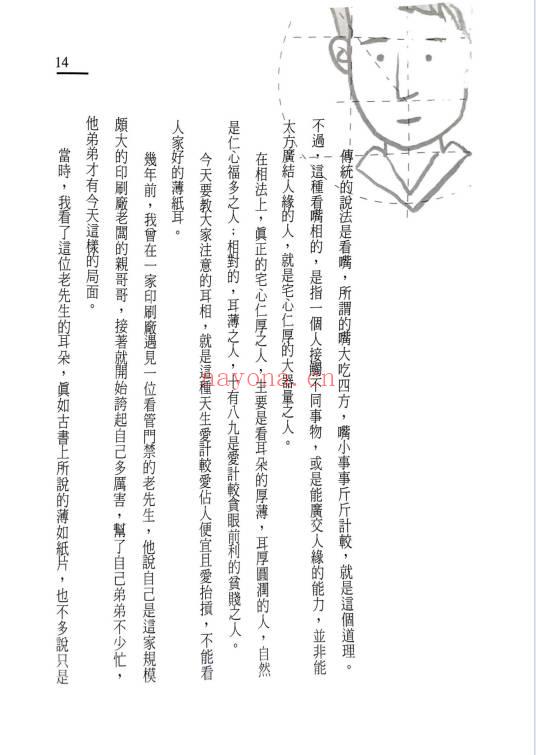 14
傳統的說法是看嘴，所謂的嘴大吃四方，嘴小事事斤斤計較，就是這個道理。
不過，這種看嘴相的，是指一個人接觸不同事物，或是能廣交人緣的能力，並非能
太方廣結人緣的人，就是宅心仁厚的大器量之人。
在相法上，真正的宅心仁厚之人，主要是看耳朵的厚薄，耳厚圓潤的人，自然
是仁心福多之人；相對的，耳薄之人，十有八九是愛計較貪眼前利的貧賤之人。
今天要教大家注意的耳相，就是這種天生愛計較愛佔人便宜且愛抬摃，不能看
人家好的薄紙耳。
幾年前，我曾在一家印刷廠遇見一位看管門禁的老先生，他說自己是這家規模
頗大的印刷廠老闆的親哥哥，接著就開始誇起自己多厲害，幫了自己弟弟不少忙，
他弟弟才有今天這樣的局面。
當時，我看了這位老先生的耳朵，真如古書上所說的薄如紙片，也不多說只是
nayona.cn